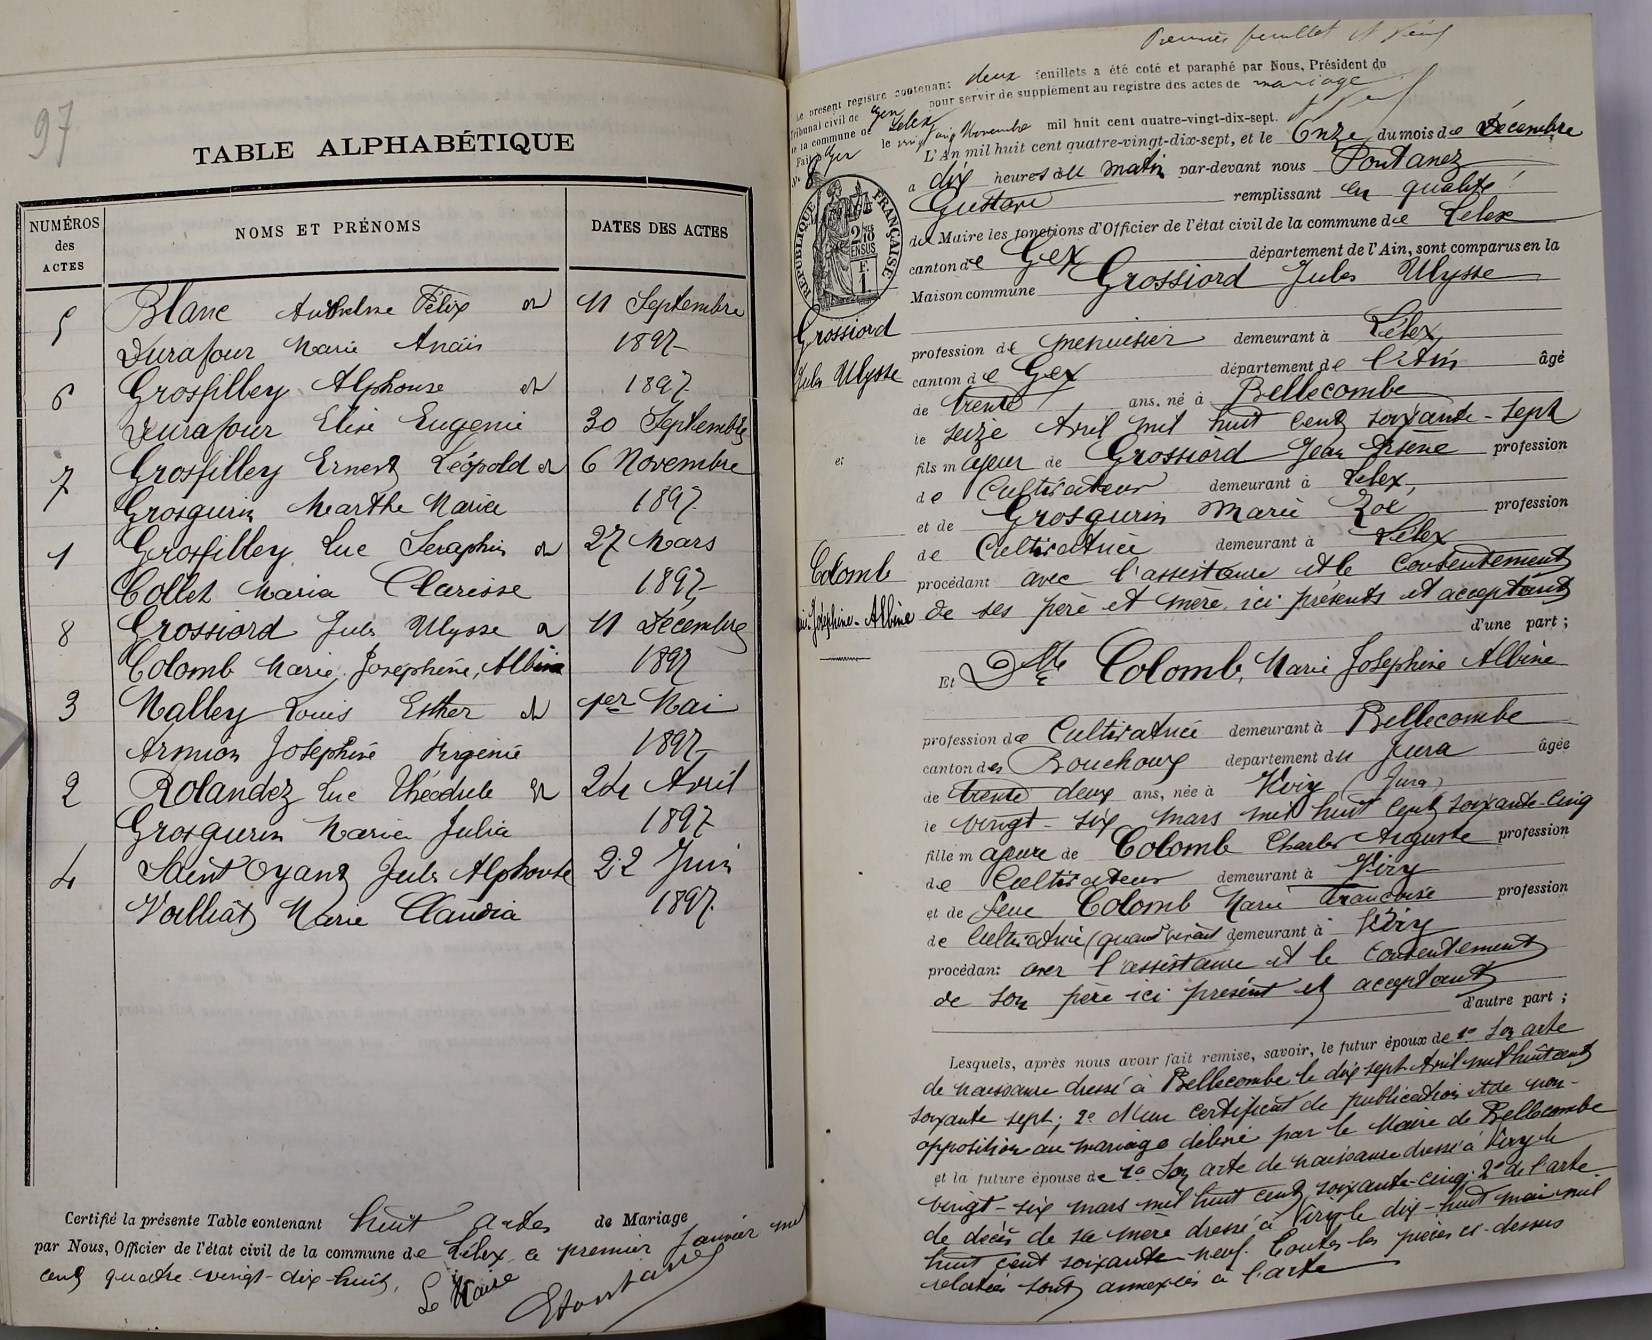 97
TABLE ALPHABÉTIQUE
NUMÉROS des ACTES
NOMS ET PRÉNOMS
DATES DES ACTES
5 Blanc Anthelme Félix et 11 Septembre
Durafour Marie Anaïs 1897
6 Grosfilley Alphonse et 1897
Durafour Elise Eugenie 30 Septembre
7 Grosfilley Ernest Léopold et 6 Novembre
Grosgurin Marthe Maria 1897
1 Grosfilley Luc Seraphin et 27 Mars
Collet Maria Clarisse 1897
8 Grossiord Jules Ulysse et 11 Décembre
Colomb Marie, Joséphine, Albine 1897
3 Malley Louis Esther et 1er Mai
Armion Joséphine Virginie 1897
2 Rolandez Luc Théodule et 24 Avril
Grosgurin Maria Julia 1897
4 Saint Oyant Jules Alphonse 22 Juin
Vuilliat Marie Claudia 1897
Certifié la présente Table contenant huit actes de Mariage
par Nous, Officier de l'état civil de la commune de Lélex ce premier Janvier mil
cent quatre vingt-dix-huit,
Le Maire
Premier feuillet
Le présent registre contenant deux feuillets a été coté et paraphé par Nous, Président du
Tribunal civil de Gex pour servir de supplément au registre des actes de mariage
de la commune de Lelex
Fait à Gex le vingt cinq Novembre mil huit cent quatre-vingt-dix-sept.
N° 8
L'An mil huit cent quatre-vingt-dix-sept, et le Onze du mois de Décembre
a dix heures du matin par-devant nous Pontanez
Gustave remplissant en qualité
de Maire les fonctions d'Officier de l'état civil de la commune de Lelex
canton de Gex département de l'Ain, sont comparus en la
Maison commune Grossiord Jules Ulysse
RÉPUBLIQUE FRANÇAISE
2/10 EN SUS
F. 1
Grossiord
Jules Ulysse
profession de menuisier demeurant à Lélex,
canton de Gex département de l'Ain âgé
de trente ans, né à Bellecombe
le seize Avril mil huit cent soixante-sept
et
fils majeur de Grossiord Jean Arsene profession
de Cultivateur demeurant à Lelex,
et de Grosgurin Marie Zoé profession
de Cultivatrice demeurant à Lélex
Colomb
Joséphine-Albine
procédant avec l'assistance et le consentement
de ses père et mère, ici présents et acceptant
d'une part ;
Et Dlle Colomb, Marie Joséphine Albine
profession de Cultivatrice demeurant à Bellecombe
canton des Bouchoux département du Jura âgée
de trente deux ans, née à Viry (Jura)
le vingt-six mars mil huit cent soixante-cinq
fille majeure de Colomb Charles Auguste profession
de Cultivateur demeurant à Viry
et de feue Colomb Marie Francoise profession
de Cultivatrice (quand vivait demeurant à Viry
procédant avec l'assistance et le consentement
de son père ici présent et acceptant
d'autre part ;
Lesquels, après nous avoir fait remise, savoir, le futur époux de 1° Son acte
de naissance dressé à Bellecombe le dix sept Avril mil huit cent
soixante sept; 2° d'un certificat de publication et de non-
opposition au mariage délivré par le Maire de Bellecombe
et la future épouse de 1° Son acte de naissance dressé à Viry le
vingt-six mars mil huit cent soixante-cinq. 2° de l'acte
de décès de sa mère dressé à Viry le dix-huit mai mil
huit cent soixante-neuf. Toutes les pièces ci-dessus
relatées sont annexées à l'acte